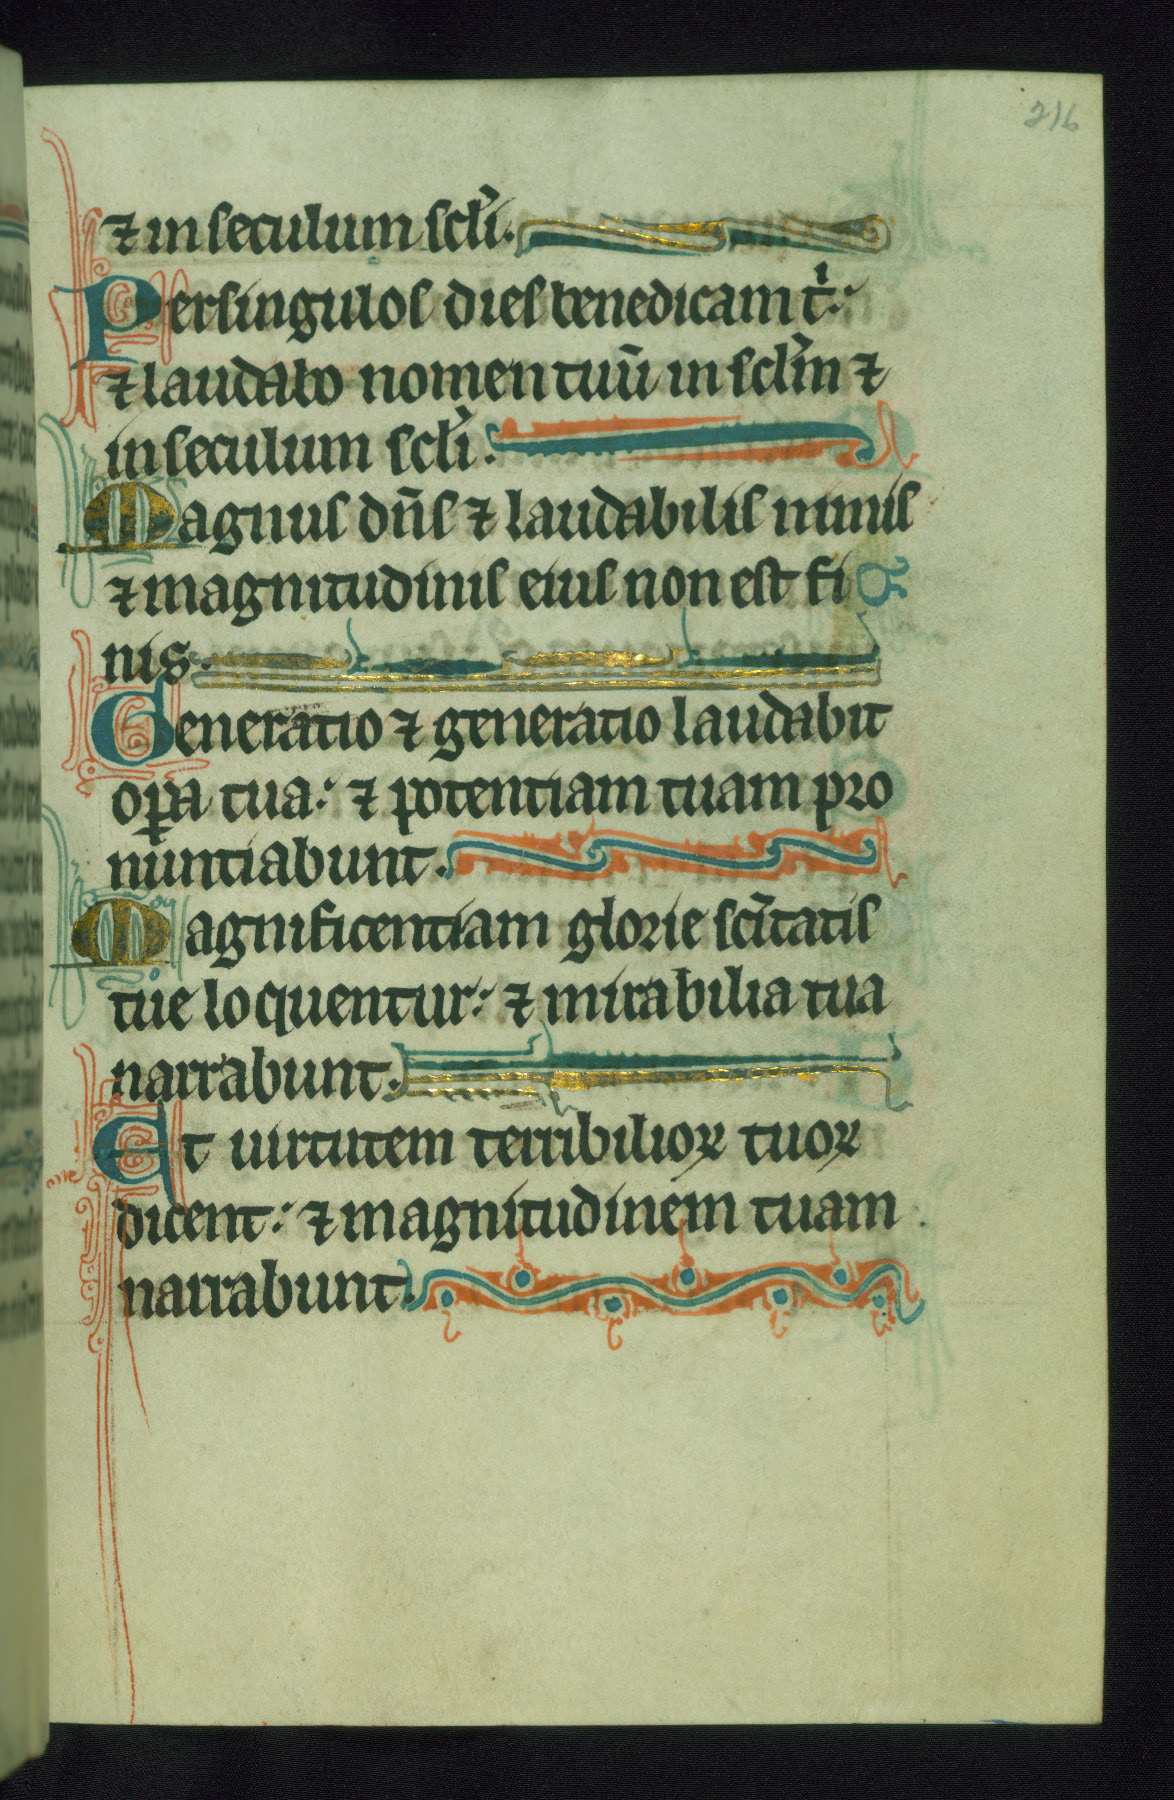 216
⁊ in seculum scl̃i.
Per singulos dies benedicam t̾:
⁊ laudabo nomen tuū in scl̃m ⁊
in seculum scl̃i.
Magnus dñs ⁊ laudabilis nimis
⁊ magnitudinis eius non est fi
nis.
Generatio ⁊ generatio laudabit
oꝑa tua: ⁊ potentiam tuam pro
nuntiabunt.
Magnificentiam glorie scĩtatis
tue loquentur: ⁊ mirabilia tua
narrabunt.
Et uirtutem terribilioꝝ tuoꝝ
dicent: ⁊ magnitudinem tuam
narrabunt.